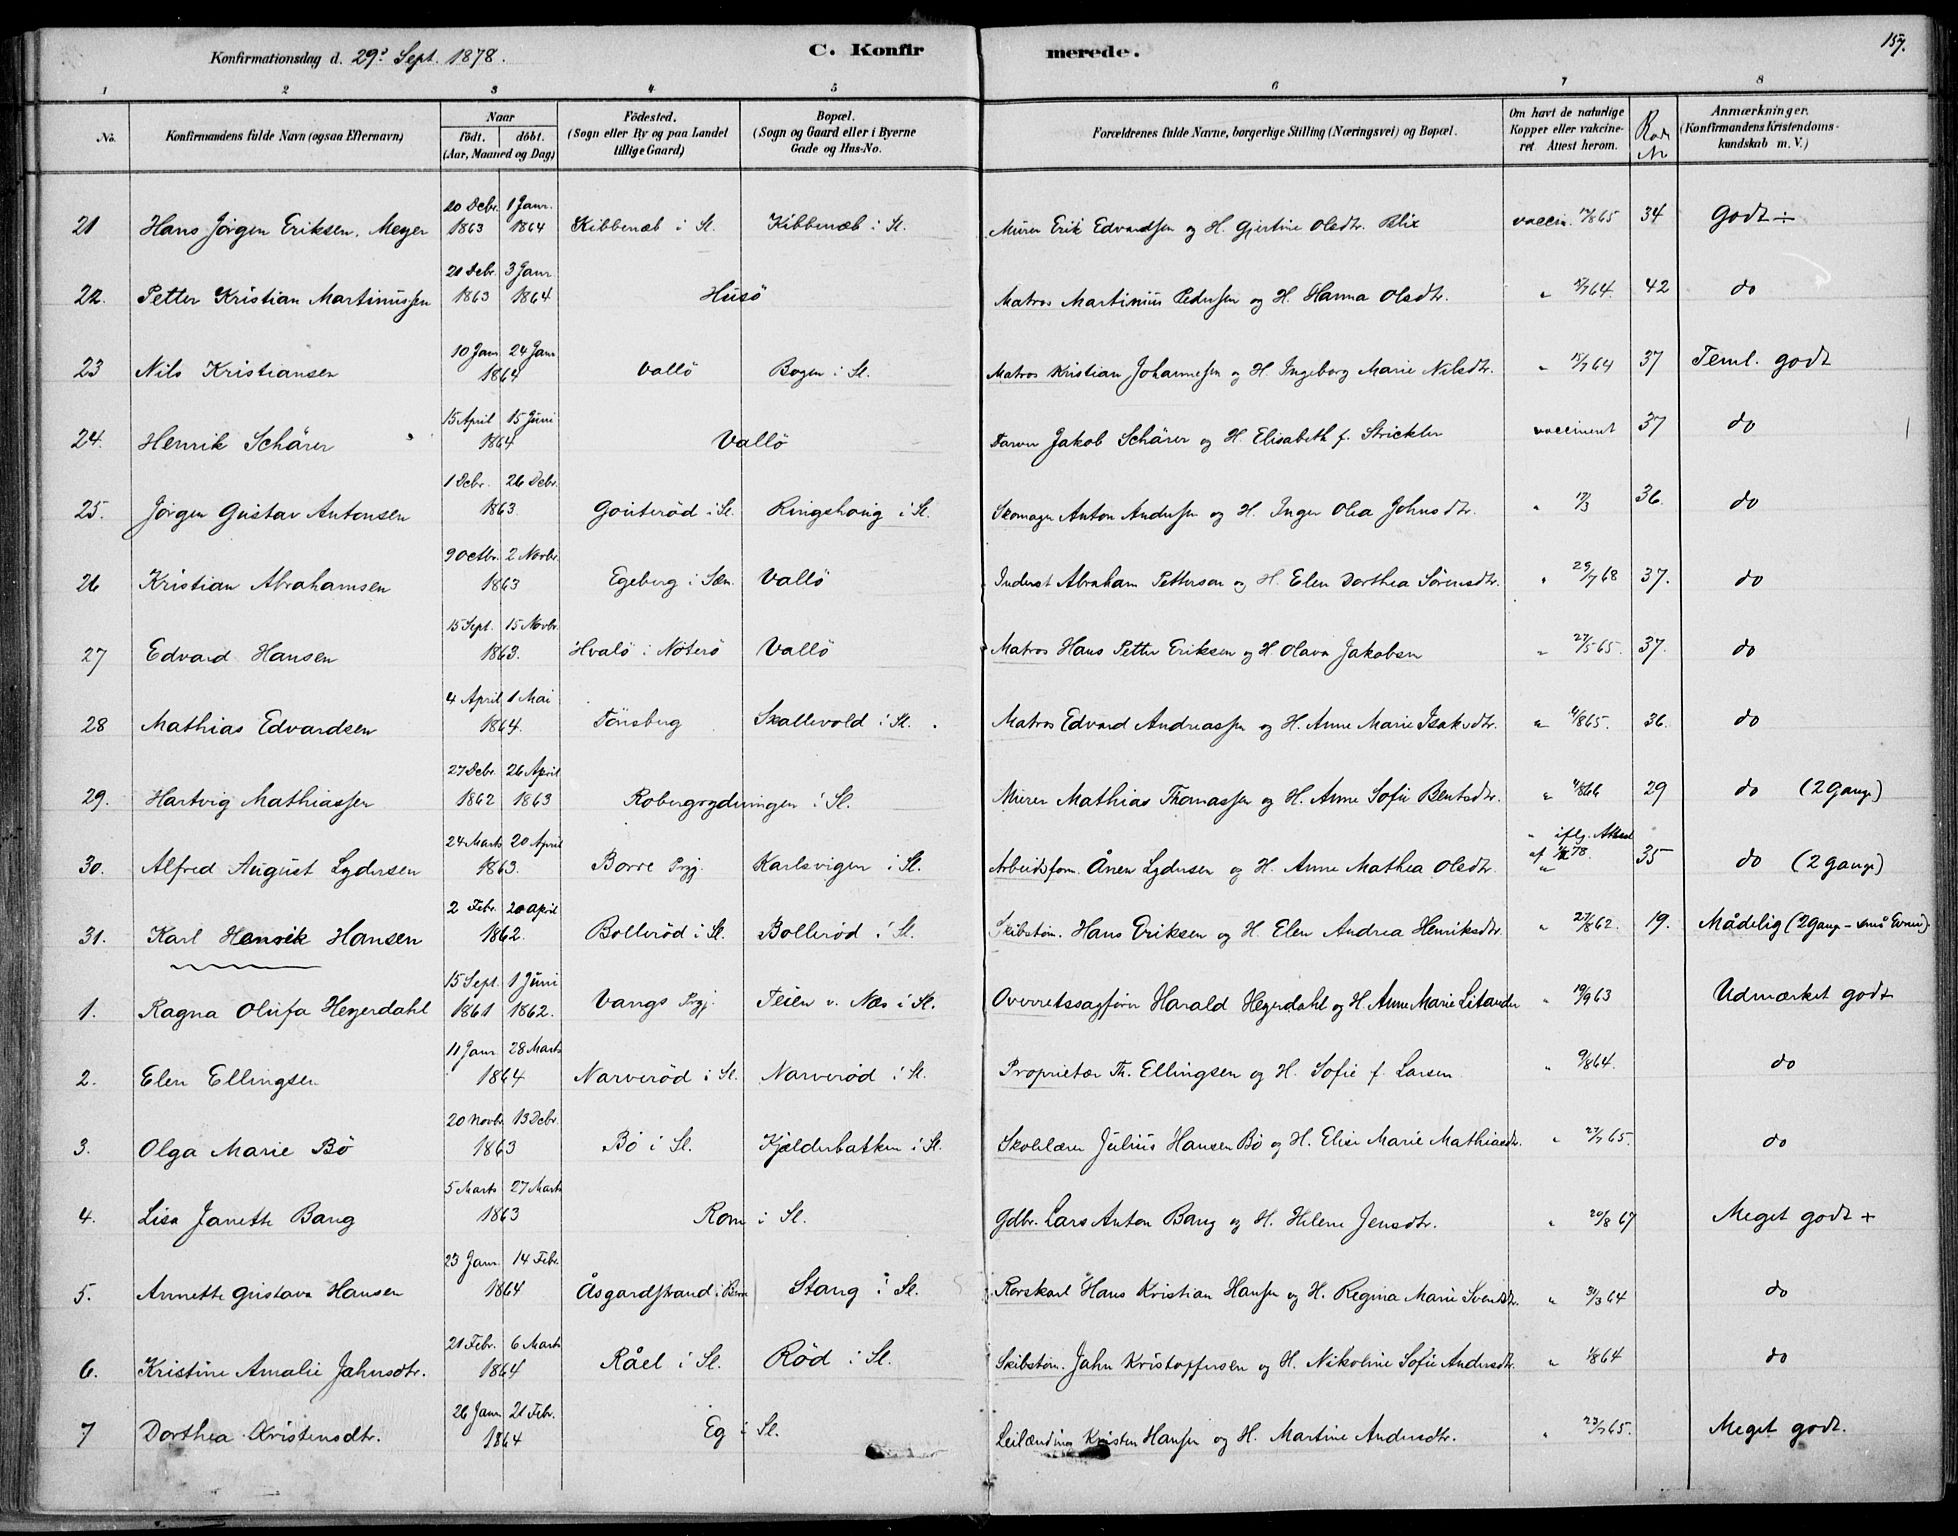 Konfirmationsdag d. 29de Sept. 1878. C. Konfirmerede. 157.
1 2 3 4 5 6 7 8
No. Konfirmandens fulde Navn (ogsaa Efternavn) Naar født. døbt. (Aar, Maaned og Dag) Fødested. (Sogn eller By og paa Landet tillige Gaard) Bopæl. (Sogn og Gaard eller i Byerne Gade og Hus-No. Forældrenes fulde Navne, borgerlige Stilling (Næringsvei) og Bopæl. Om havt de naturlige Kopper eller vakcineret Attest herom. Anmærkninger. (Konfirmandens Kristendomskundskab m. V.)
21 Hans Jørgen Eriksen, Meyer 20 Decbr. 1863 1 Janr. 1864 Kibbenæb i Sl. Kibbenæb i Sl. Murer Erik Edvardsen og H. Gjertine Olsdtr. Blix vaccin. 34 Godt ÷
22. Petter Kristian Martinussen 21 Debr. 1863 3 Janr 1864 Husö Matros Martinius Pedersen og H. Hanna Olsdtr. " 42 do
23 Nils Kristiansen 10 Janr 24 Janr 1864 Vallö Bogen i Sl. Matros Kristian Johannesen og H. Ingeborg Marie Nilsdtr. " 15/7 64 37 Teml. godt
24. Henrik Schärer 15 April 15 Juni 1864 Vallö Farver Jakob Schärer og H. Elisabeth f. Strickler vaccineret 37 do
25. Jørgen Gustav Antonsen 1 Debr. 26 Debr. 1863 Gouteröd i Sl. Ringshoug i Sl. Skomager Anton Andersen og H. Inger Olea Johnsdtr. " 36. do
26 Kristian Abrahamsen 9 Octbr. 2 Novbr. 1863 Egeberg i Sæm Vallö Inderst Abraham Petterson og H. Elen Dorthea Sørensdtr. " 29/7 68 37. do
27 Edvard Hansen 15 Sept. 15 Novbr. 1863. Hvalö i Nøterö Vallö Matros Hans Petter Eriksen og H. Olava Jakobsen " 27/5 65. 37. do
28 Mathias Edvardsen 4 April 1 Mai 1864. Tönsberg Skallevold i Sl. Matros Edvard Andreassen og H. Anne Marie Isaksdtr. " 36. do
29. Hartvig Mathiassen 27 Debr. 1862 26 April 1863 Robergrydningen i Sl. Murer Mathias Thomassen og H. Anne Sofie Bentsdtr. " 29 do (2 Gange)
30. Alfred August Lydersen 24 Marts 20 April 1863. Borre Prgj. Karlsvigen i Sl. Arbeidsform. Ånen Lydersen og H. Anne Mathea Olsdtr. " iflg. Attest af 35 do (2 gange)
31. Karl Henrik Hansen 2 Febr. 20 April 1862. Bolleröd i Sl. Bolleröd i Sl. Skibstøm. Hans Eriksen og H. Elen Andrea Henriksdtr. " 27/8 62. 19. Mådelig (2 Gange - små Evner).
1. Ragna Olufa Heyerdahl 15 Sept. 1861 1 Juni 1862. Vangs Prgj. Teien v. Næs i Sl. Overretssagfører Harald Heyerdahl og H. Anne Marie Litander " 19/9 63 Udmærket godt
2. Elen Ellingsen 11 Janr. 28 Marts 1864 Narveröd i Sl. Narveröd i Sl. Proprietær Th. Ellingsen og H. Sofie f. Larsen " 9/8 64. do
3. Olga Marie Bö 20 Novbr. 13 Debr. 1863 Bö i Sl. Kjælderbakken i Sl. Skolelærer Julius Hansen Bö og H. Elise Marie Mathiasdtr. " 27/7 65. do
4. Lisa Janette Bang 5 Marts 27 Marts 1863 Rom i Sl. Gdbr. Lars Anton Bang og H. Helene Jensdtr. " 20/8 67 Meget godt +
5. Annette Gustava Hansen 23 Janr. 14 Febr. 1864 Åsgardstrand i Borre Stang i Sl. Rorskarl Hans Kristian Hansen og H. Regina Marie Svendsdtr. " 31/3 64 do
6. Kristine Amalie Jahnsdtr. 21 Febr. 6 Marts 1864 Råel i Sl. Röd i Sl. Skibstøm. Jahn Kristoffersen og H. Nikoline Sofie Andersdtr. " do
7 Dorthea Kristensdtr. 26 Janr. 21 Febr. 1864 Eg i Sl. Leilænding Kristen Hansen og H. Martine Andersdtr. " 23/7 65. Meget godt.